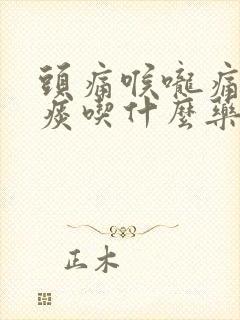 頭痛喉嚨痛
痰喫什麼藥
正木